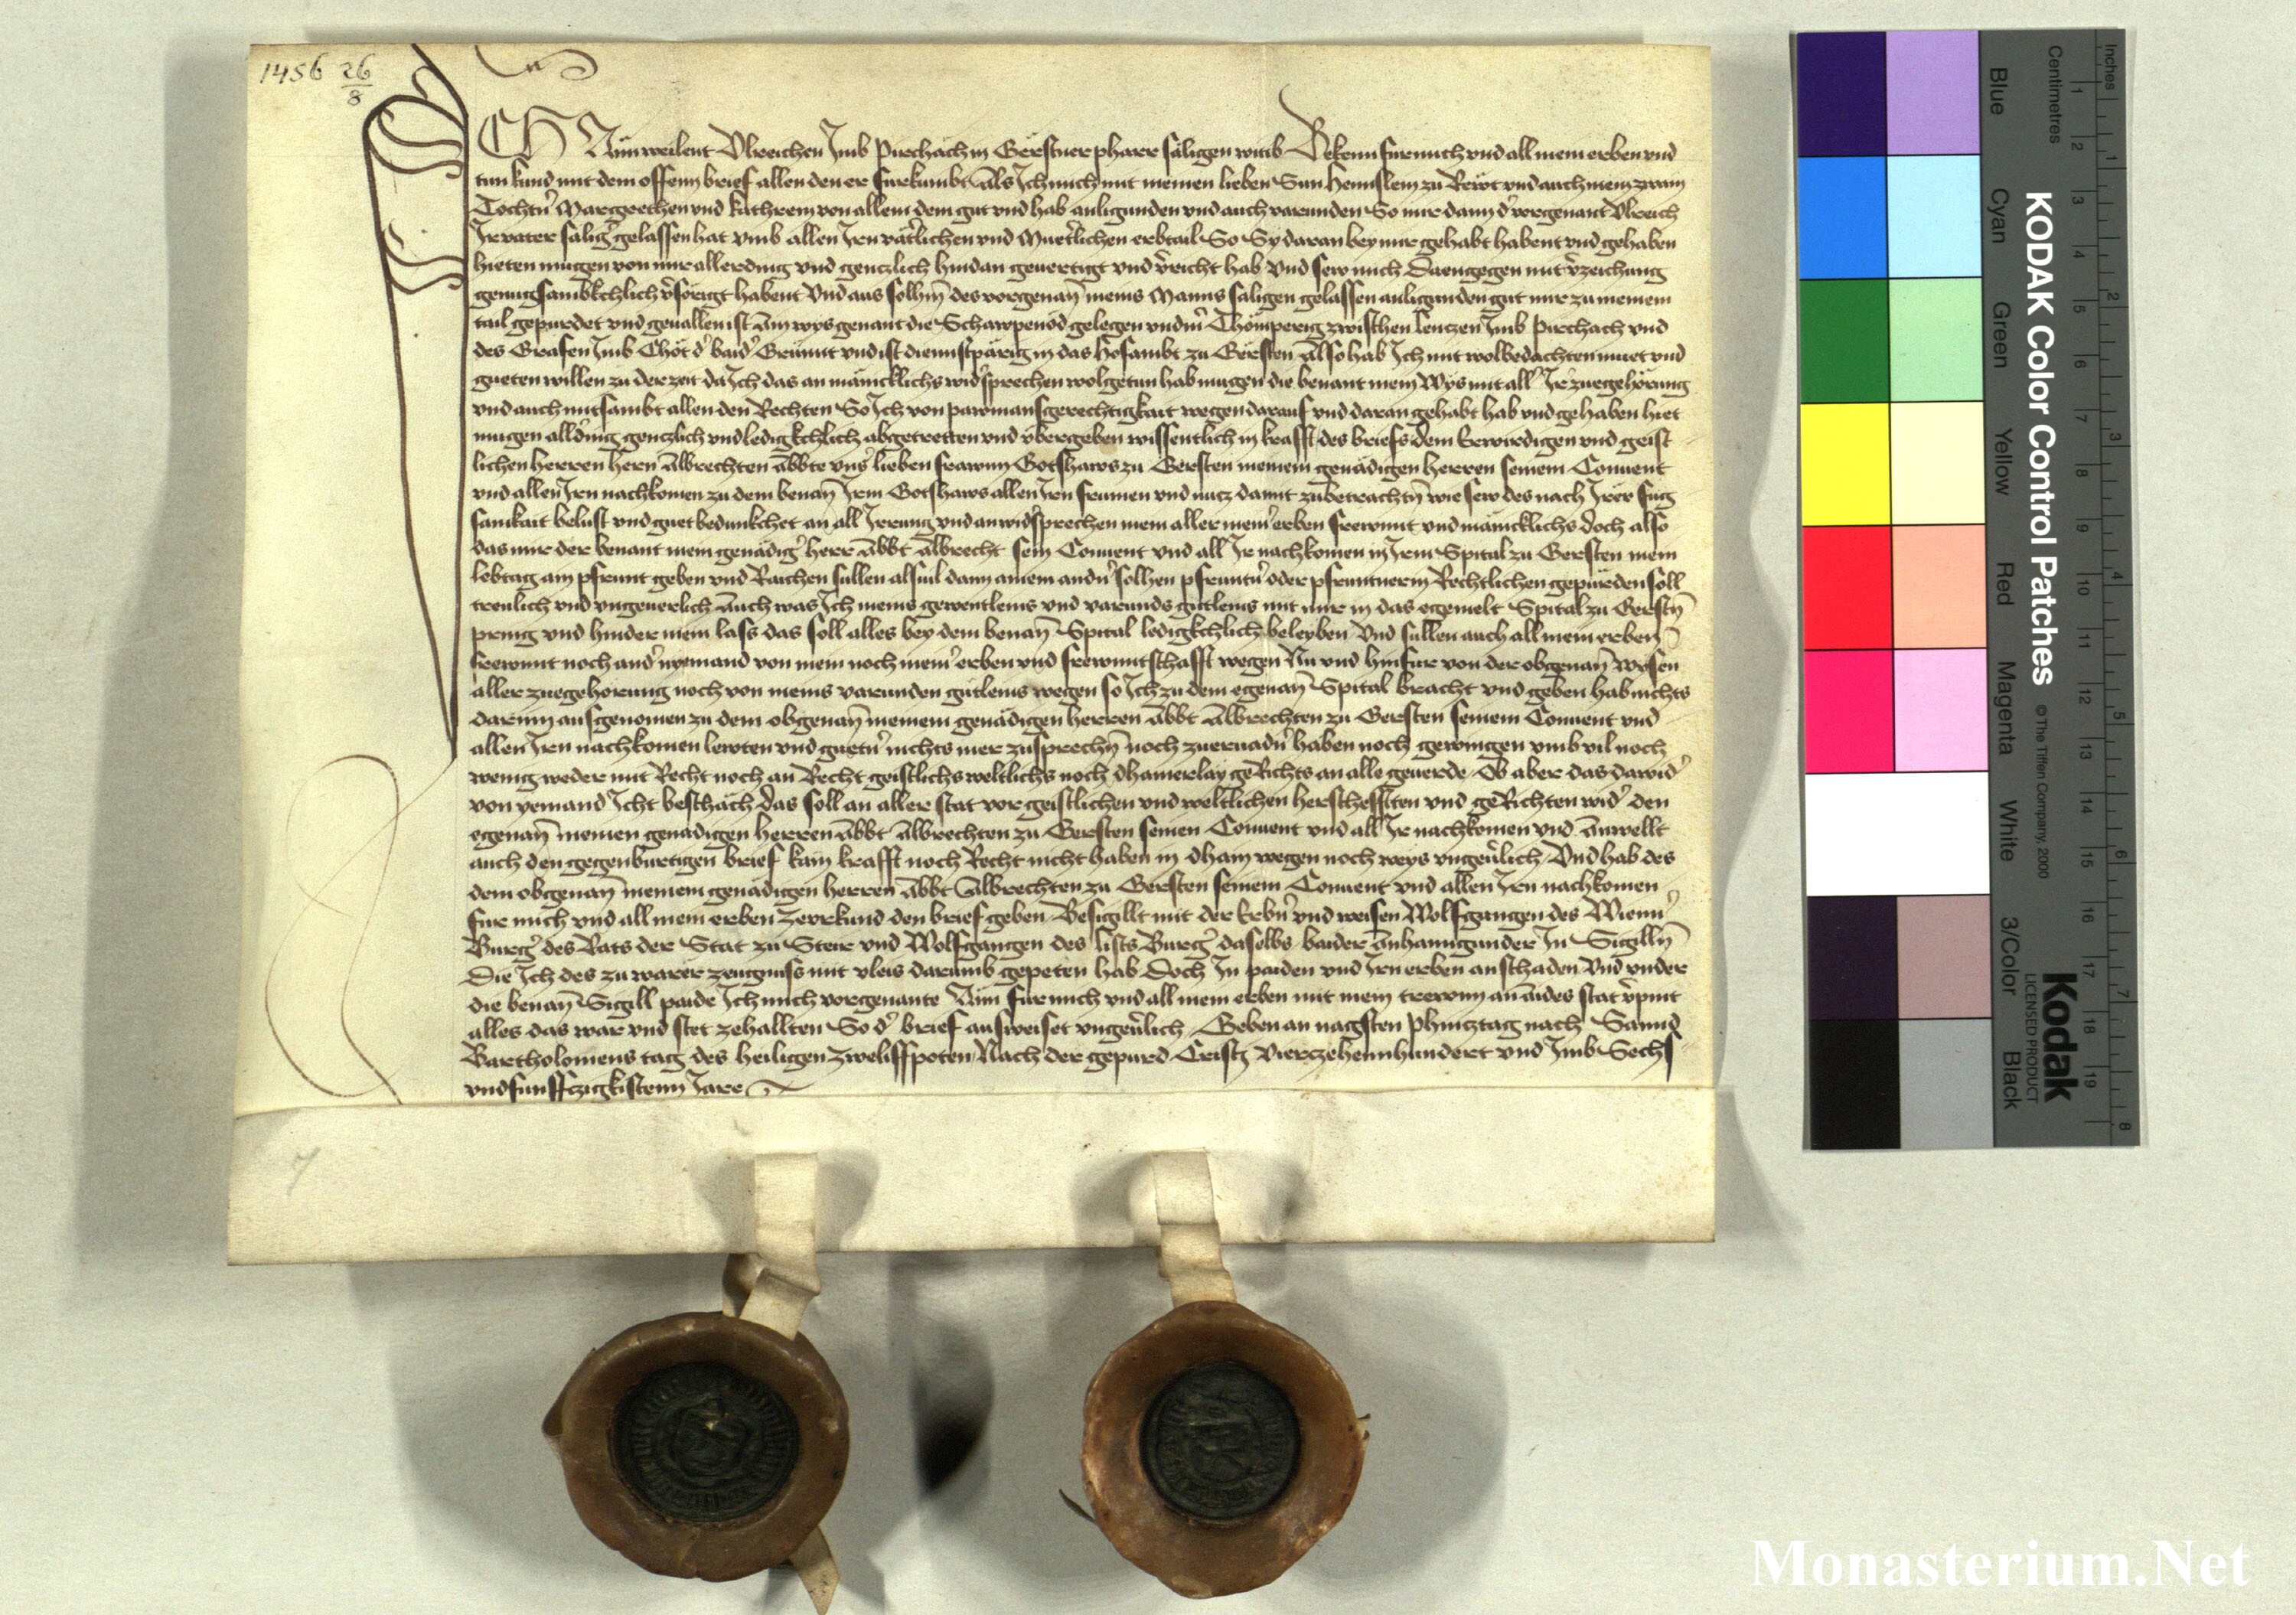 1456 26/8
ICH Ann weilent Vlreichen Jmb Purchach in Gërstner pharr säligen witib Bekenn fur mich vnd all mein erben vnd
tun kund mit dem offenn brief allen den er furkumbt Als Ich mich mit meinen lieben Sun Hennslein zu Rewt vnd auch mein zwain
Tochtn̄ Margrethen vnd Kathrein von allem dem gut vnd hab anligunden vnd auch varunden So mir dann d' vorgenant Vlreich
Ir vater sälig' gelassen hat vmb allen Irn väterlichen vnd Mueterlichen erbtail So Sy daran bey mir gehabt habent vnd gehaben
hieten mügen von mir allerding vnd genczlich hindan geuertigt vnd v'richt hab Vnd sew mich Daengegen mit v'zeichung
genugsamkchlich v'sorigt habent Vnd aus solhm̄ des vorgenan̄ meins Manns saligen gelassen anligunden gut mir zu meinem
tail gepurdet vnd geuallen ist Ain wys genant die Schawpenöd gelegen vndm̄ Thömperig zwischen lenczen Jmb Purchach vnd
des Grafen Jmb Chöt d' baid' Grünnt vnd ist diennstpärig in das Hofambt zu Gërsten Also hab Ich mit wolbedachten muet vnd
gueten willen zu der zeit da Ich das an mänicklichs wid'sprechen wolgetun hab mugen die benant mein Wys mit all' Ir' zuegehörung
vnd auch mitsambt allen den Rechten So Ich von pawmansgerechtigkait wegen darauf vnd daran gehabt hab vnd gehaben hiet
mugen alld'ing genczlich vnd ledigkchlich abgetretten vnd vbergeben wissentlich in krafft des briefs dem Erwirdigen vnd geist
lichen herren hern Albrechten Abbte vns' lieben frawnn Gotshaws zu Gersten meinem genädigen herren seinem Conuent
vnd allen Irn nachkomen zu dem benan̄ Irm Gotshaws allen Irn frumen vnd nucz damit zubetrachtn̄ wie sew des nach Irer fug
samkait belust vnd guet bedunkchet an all Irrung vnd an wid'sprechen mein aller mein' erben frewnnt vnd mänicklichs Doch also
das mir der benant mein genädig' herr Abbt Albrecht sein Conuent vnd all Ir nachkomen in Irm Spital zu Gersten mein
lebtag ain pfrunt geben vnd Raichen sullen alsuil dann ainem andn̄ solhen pfruntn̄ oder pfruntnerin Rechtlichen gepurden soll
treulich vnd vngeuerlich Auch was Ich meins gewentleins vnd varunds gutleins mit mir in das egemelt Spital zu Gerstn̄
pring vnd hinder mein lass das soll alles bey dem benan̄ Spital ledigkchlich beleyben Vnd sullen auch all mein erben
frewnnt noch and' nyemand von mein noch mein' erben vnd frewnntschafft wegen Nu vnd hinfur von der obgenan̄ wysen
aller zuegehorung noch von meins varunden gütleins wegen so Ich zu dem egenan̄ Spital bracht vnd geben hab nichts
darinn ausgenomen zu dem obgenan̄ meinem genädigen herren Abbt Albrechten zu Gersten seinem Conuent vnd
allen Irn nachkomen lewten vnd guetn̄ nichts mer zusprechn̄ noch zueruadn̄ haben noch gewingen vmb vil noch
wenig weder mit Recht noch an Recht geistlichs weltlichs noch dhainerlay geRichts an alle geuerde Ob aber das dawid'
von yemand Icht beschäch das soll an aller stat vor geistlichen vnd weltlichen herschefften vnd geRichten wid' den
egenan̄ meinen genadigen herren Abbt Albrechten zu Gersten seinen Conuent vnd all Ir nachkomen vnd Anwellt
auch den gegenburtigen brief kain krafft noch Recht nicht haben in dhain wegen noch weys vngeu'lich Vnd hab des
dem obgenan̄ meinem genadigen herren Abbt Albrechten zu Gersten seinem Conuent vnd allen Irn nachkomen
fur mich vnd all mein erben Zevrkund den brief geben Besigillt mit der Erbn̄ vnd weisen Wolfgangen des Wienn'
Burg' des Rats der Stat zu Steir vnd Wolfgangen des lists Burg' daselbs baider Anhanngunder In Sigilln̄
Die Ich des zu warer zeugnuss mit vleis darumb gepeten hab Doch In paiden vnd Irn erben an schaden Vnd vnder
die benan̄ Sigill paide Ich mich vorgenante Ann fur mich vnd all mein erben mit mein trewnn an aides stat v'pint
alles das war vnd stet zehallten So d' brief ausweiset vngeu'lich Geben an nagsten Phincztag nach Sannd
Bartholomeus tag des heiligen zwelifpoten Nach der gepurd Cristj Vierczehennhundert vnd Jmb Sechs
vndfunffczigkistenn Jare
KODAK Color Control Patches
© The Tiffen Company, 2000
Kodak
LICENSED PRODUCT
Inches 1 2 3 4 5 6 7 8
Centimetres 1 2 3 4 5 6 7 8 9 10 11 12 13 14 15 16 17 18 19
Blue Cyan Green Yellow Red Magenta White 3/Color Black
Monasterium.Net